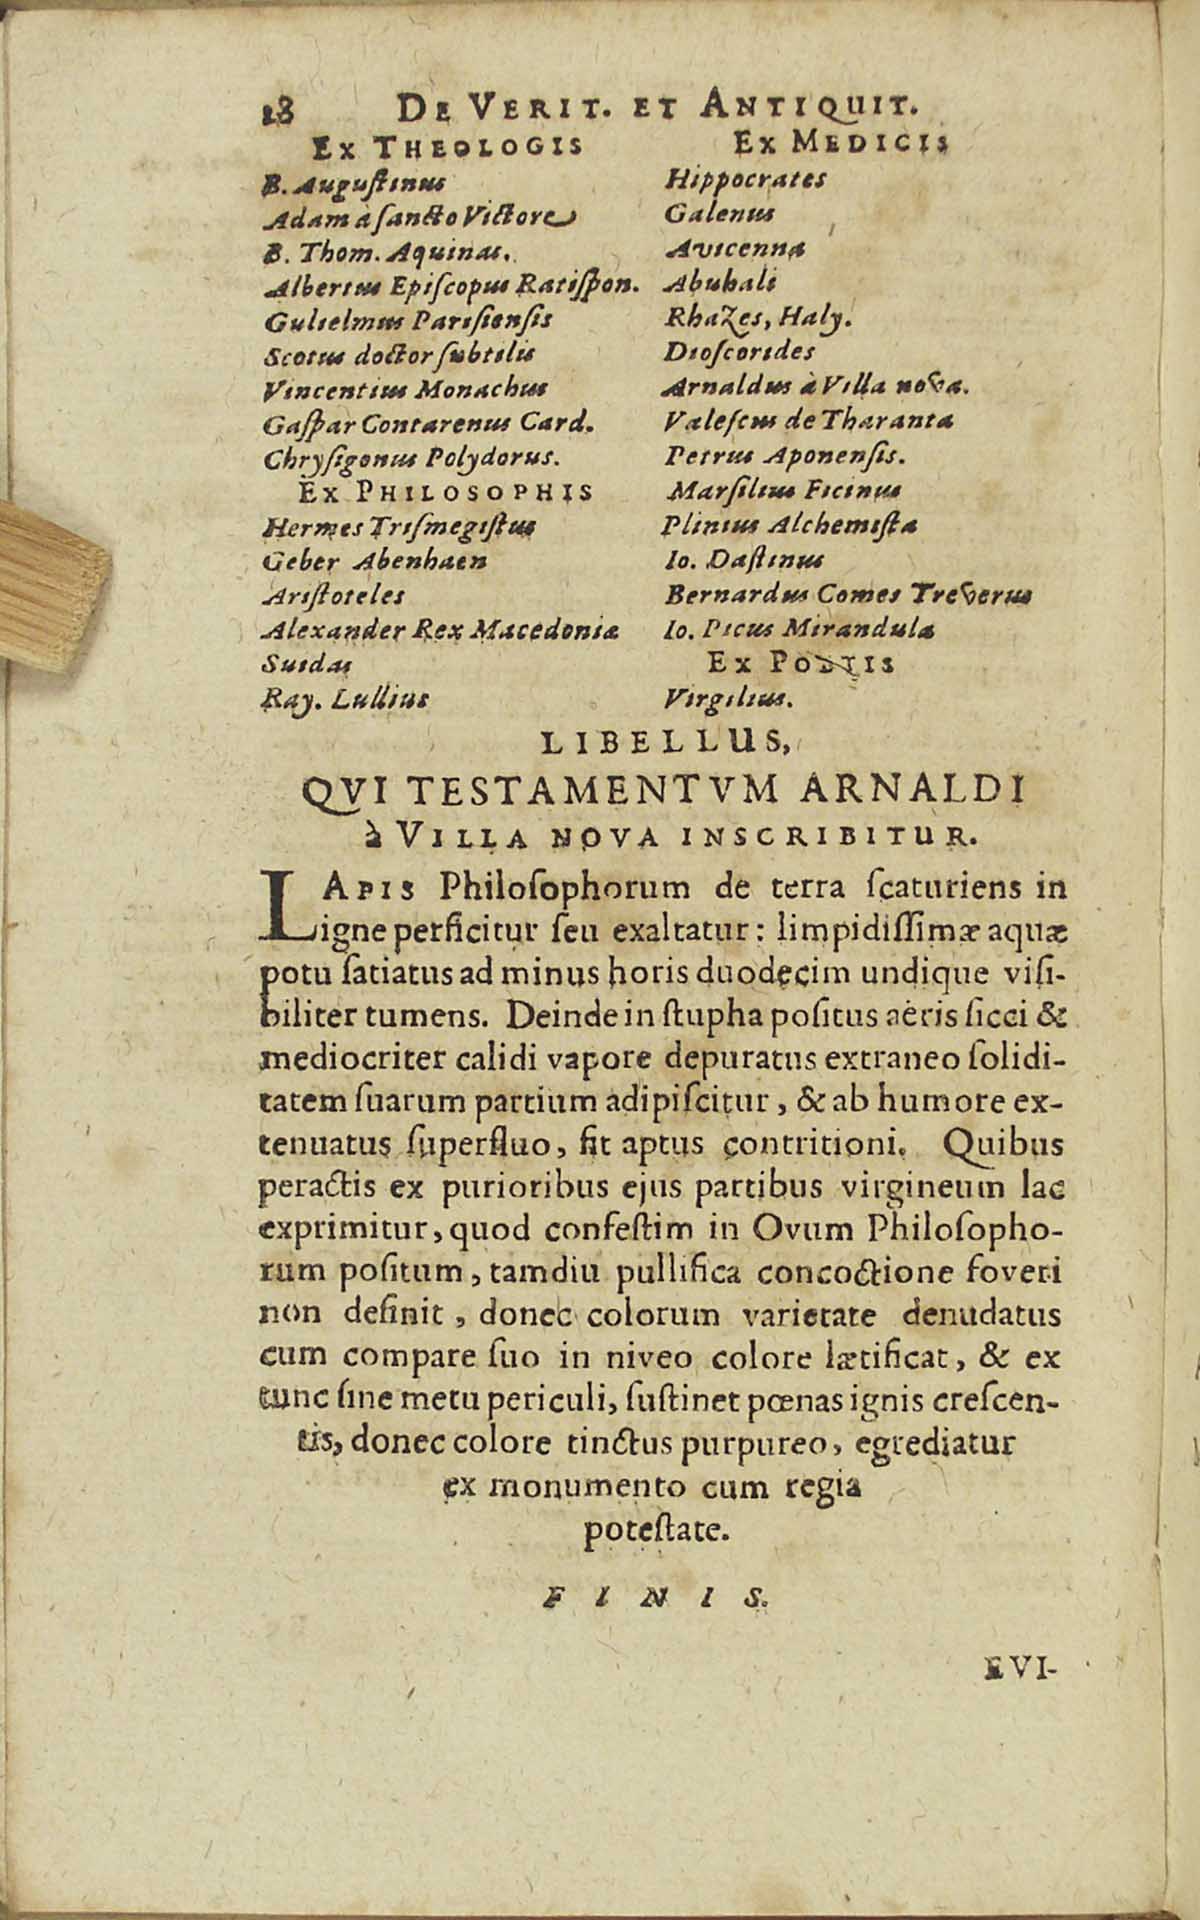 28 DE VERIT. ET ANTIQUIT.
EX THEOLOGIS
B. Auguſtinus
Adam à ſancto Victore
B. Thom. Aquinas.
Albertus Epiſcopus Ratiſpon.
Gulielmus Pariſienſis
Scotus doctor ſubtilis
Vincentius Monachus
Gaſpar Contarenus Card.
Chryſigonus Polydorus.
EX PHILOSOPHIS
Hermes Triſmegiſtus
Geber Abenhaen
Ariſtoteles
Alexander Rex Macedoniæ
Suidas
Ray. Lullius
EX MEDICIS
Hippocrates
Galenus
Avicenna
Abuhali
Rhazes, Haly.
Dioſcorides
Arnaldus à Villa nova.
Valeſcus de Tharanta
Petrus Aponenſis.
Marſilius Ficinus
Plinius Alchemiſta
Io. Daſtinus
Bernardus Comes Treverus
Io. Picus Mirandula
EX POETIS
Virgilius.
LIBELLUS,
QVI TESTAMENTVM ARNALDI
à VILLA NOVA INSCRIBITUR.
LAPIS Philoſophorum de terra ſcaturiens in
igne perficitur ſeu exaltatur: limpidiſſimæ aquæ
potu ſatiatus ad minus horis duodecim undique viſi-
biliter tumens. Deinde in ſtupha poſitus aëris ſicci &
mediocriter calidi vapore depuratus extraneo ſolidi-
tatem ſuarum partium adipiſcitur, & ab humore ex-
tenuatus ſuperfluo, fit aptus contritioni. Quibus
peractis ex purioribus ejus partibus virgineum lac
exprimitur, quod confeſtim in Ovum Philoſopho-
rum poſitum, tamdiu pullifica concoctione foveri
non deſinit, donec colorum varietate denudatus
cum compare ſuo in niveo colore lætificat, & ex
tunc ſine metu periculi, ſuſtinet pœnas ignis creſcen-
tis, donec colore tinctus purpureo, egrediatur
ex monumento cum regia
poteſtate.
FINIS.
EVI-